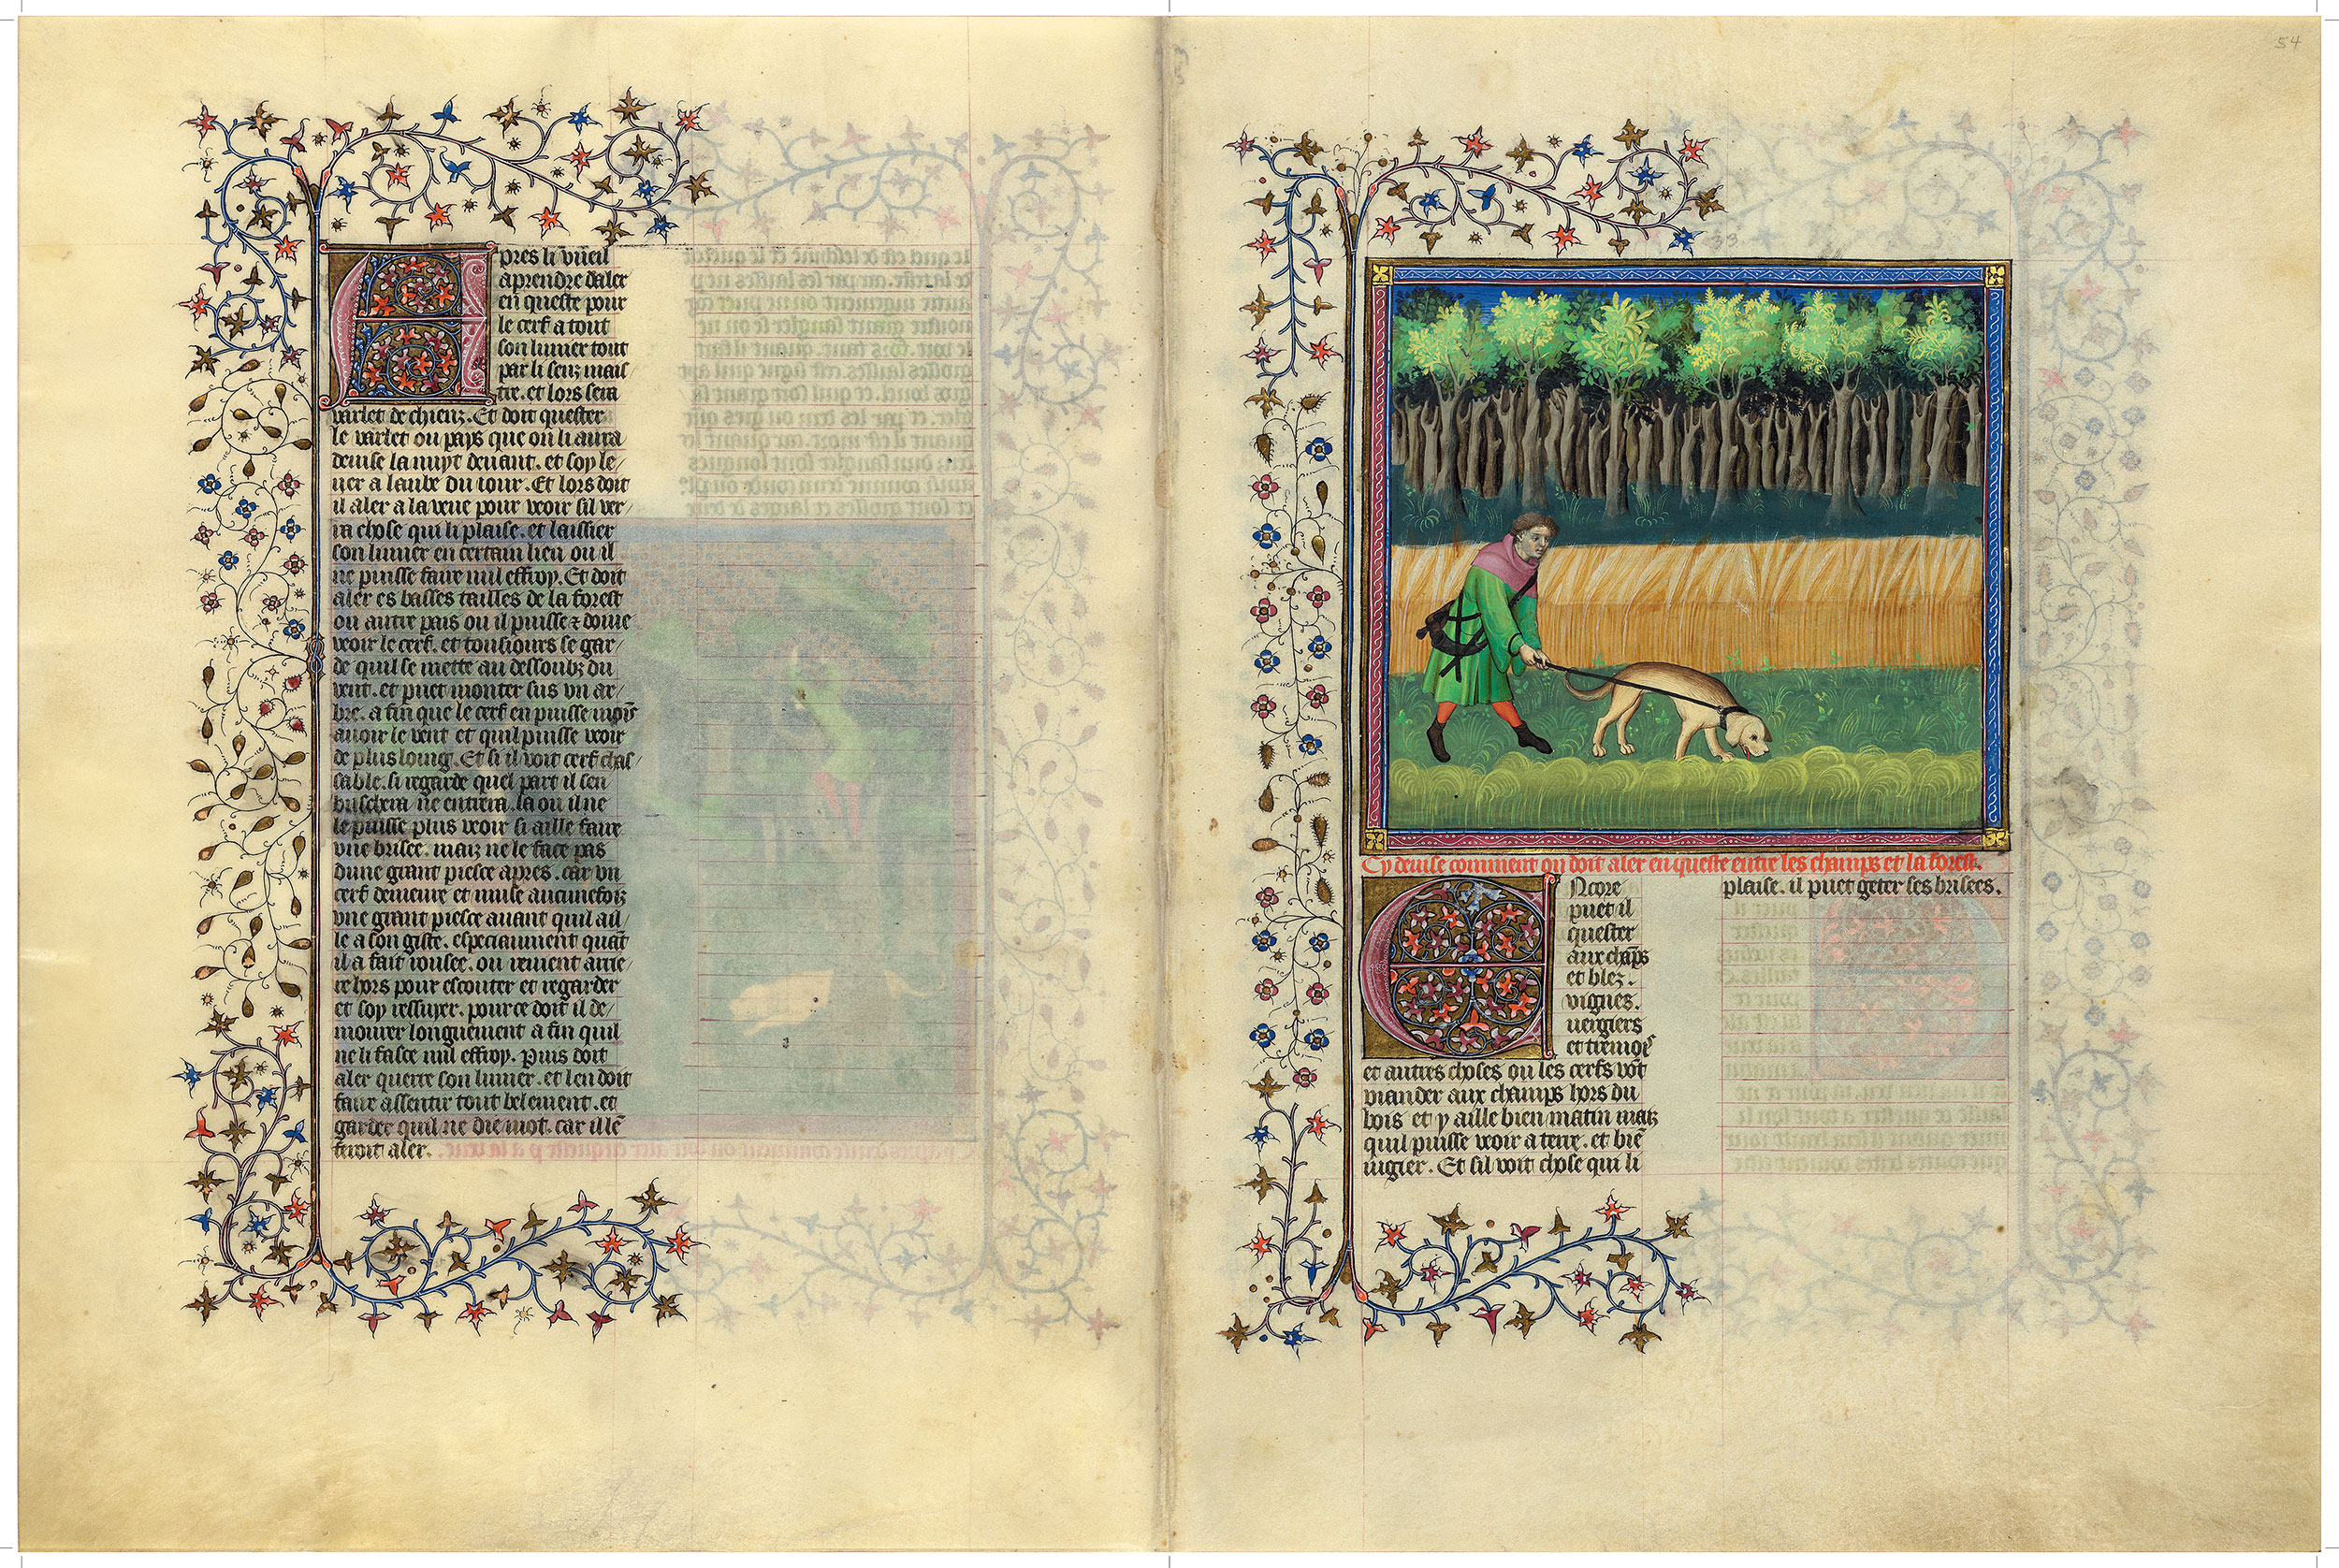 Apres li vueil
aprendre daler
en queste pour
le cerf a tout
son limier tout
par li senz mais/
tre. et lors sera
varlet de chienz. Et doit quester
le varlet ou pays que on li aura
deuise la nuyt deuant. et soy le/
uer a laube du iour. Et lors doit
il aler a la veue pour veoir sil ver/
ra chose qui li plaise. et laissier
son limier en certain lieu ou il
ne puisse faire nul effroy. Et doit
aler es basses tailles de la forest
ou autre pais ou il puisse et doiue
veoir le cerf. et tousiours se gar/
de quil se mette au dessoubz du
vent. et puet monter sus vn ar/
bre. a fin que le cerf en puisse moīs
auoir le vent et quil puisse veoir
de plus loing. Et si il voit cerf chas/
sable. si regarde quel part il sen
buschera ne entrera. la ou il ne
le puisse plus veoir si aille faire
vne brisee. maiz ne le face pas
dune grant piesce apres. car vn
cerf demeure et muse aucunefoiz
vne grant piesce auant quil ail/
le a son giste. especiaument quāt
il a fait rousee. ou reuient arrie/
re hors pour escouter et regarder
et soy ressuyer. pource doit il de/
mourer longuement a fin quil
ne li fasce nul effroy. Puis doit
aler querre son limier. et len doit
faire assentir tout belement. et
garder quil ne die mot. car il lē
feroit aler.
54
Cy deuise comment on doit aler en queste entre les champs et la forest.
Encore
puet il
quester
aux chāps
et blez.
vignes.
uergiers
et tremois
et autres choses ou les cerfs vōt
viander aux champs hors du
bois et y aille bien matin maiz
quil puisse veoir a terre. et biē
iugier. Et sil voit chose qui li
plaise. il puet geter ses brisees.